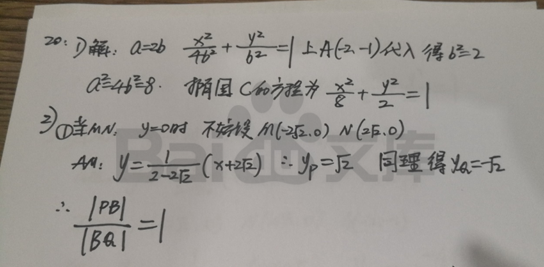 20: 1) 解: a=2b x²/4b² + y²/b² = 1 上A(-2,-1)代入 得b²=2
a²=4b²=8. 椭圆C的方程为 x²/8 + y²/2 = 1
2) ①当MN: y=0时 不妨设 M(-2√2.0) N(2√2.0)
AM: y = 1/(2-2√2) (x+2√2) ∴ yP=√2 同理得 yQ=-√2
∴ |PB|/|BQ| = 1